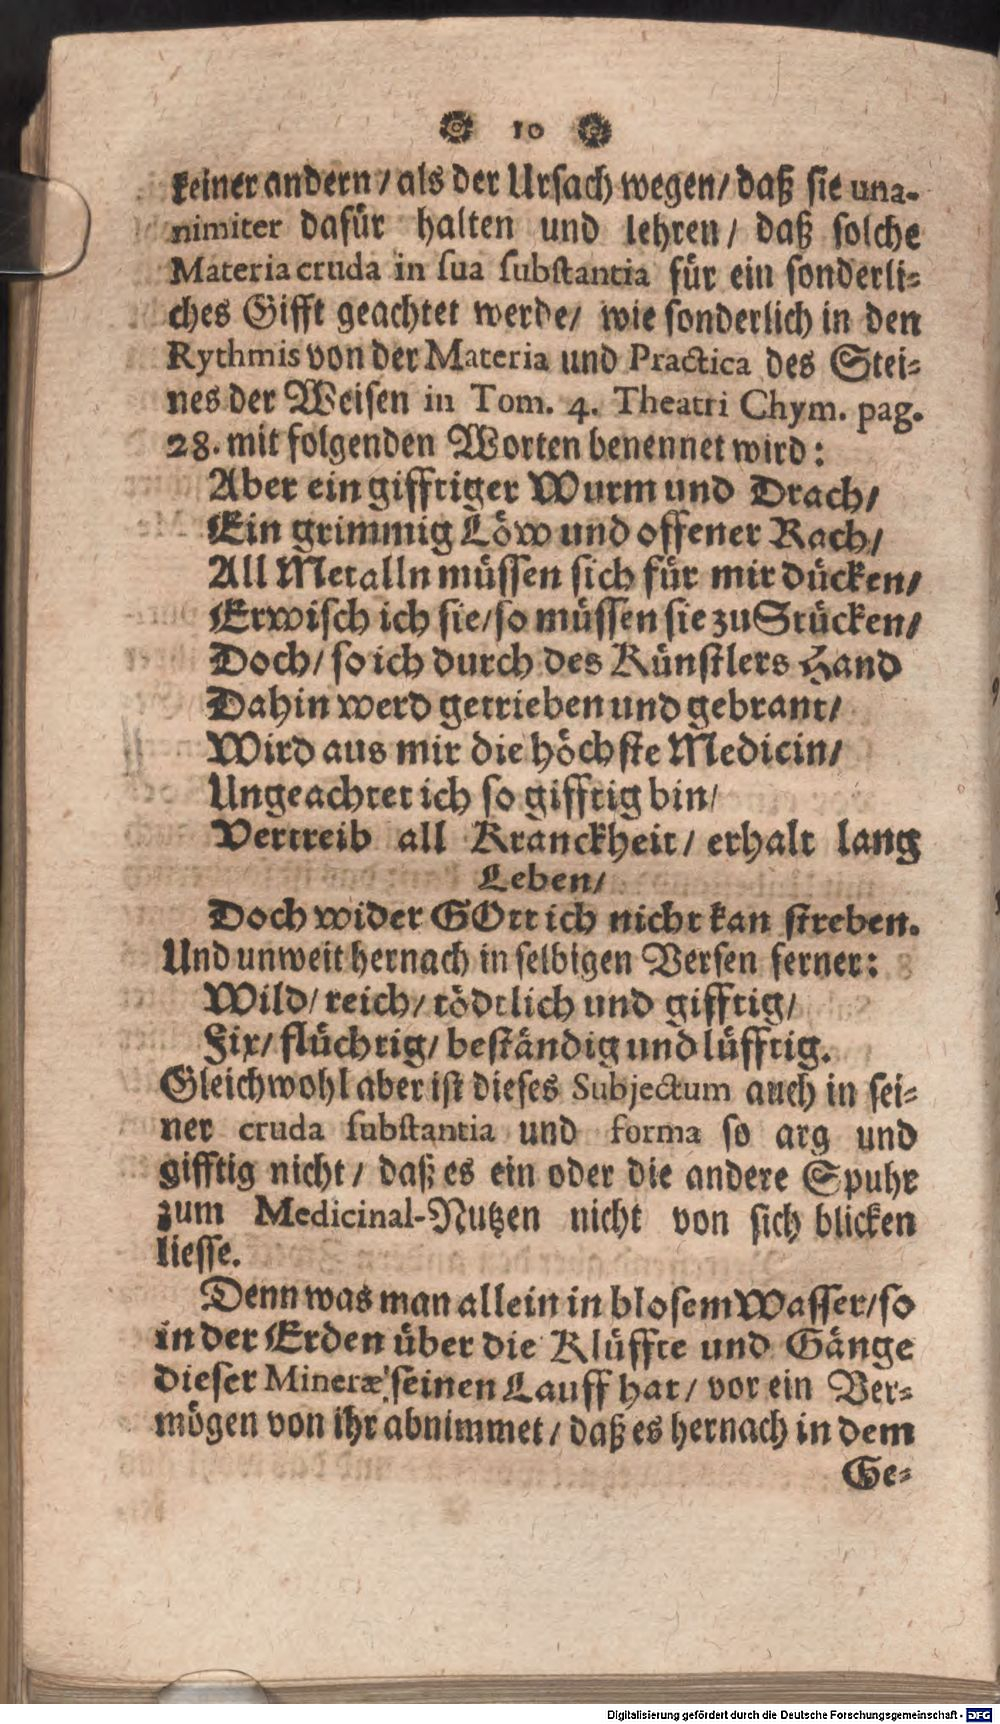 10
keiner andern / als der Ursach wegen / daß sie una-
nimiter dafür halten und lehren / daß solche
Materia cruda in sua substantia für ein sonderli-
ches Gifft geachtet werde / wie sonderlich in den
Rythmis von der Materia und Practica des Stei-
nes der Weisen in Tom. 4. Theatri Chym. pag.
28. mit folgenden Worten benennet wird:
Aber ein gifftiger Wurm und Drach /
Ein grimmig Löw und offener Rach /
All Metalln müssen sich für mir dücken /
Erwisch ich sie / so müssen sie zu Stücken /
Doch / so ich durch des Künstlers Hand
Dahin werd getrieben und gebrant /
Wird aus mir die höchste Medicin /
Ungeachtet ich so gifftig bin /
Vertreib all Kranckheit / erhalt lang
Leben /
Doch wider GOtt ich nicht kan streben.
Und unweit hernach in selbigen Versen ferner:
Wild / reich / tödtlich und gifftig /
Fix / flüchtig / beständig und lüfftig.
Gleichwohl aber ist dieses Subjectum auch in sei-
ner cruda substantia und forma so arg und
gifftig nicht / daß es ein oder die andere Spuhr
zum Medicinal-Nutzen nicht von sich blicken
liesse.
Denn was man allein in blosem Wasser / so
in der Erden über die Klüffte und Gänge
dieser Mineræ seinen Lauff hat / vor ein Ver-
mögen von ihr abnimmet / daß es hernach in dem
Ge-
Digitalisierung gefördert durch die Deutsche Forschungsgemeinschaft - DFG